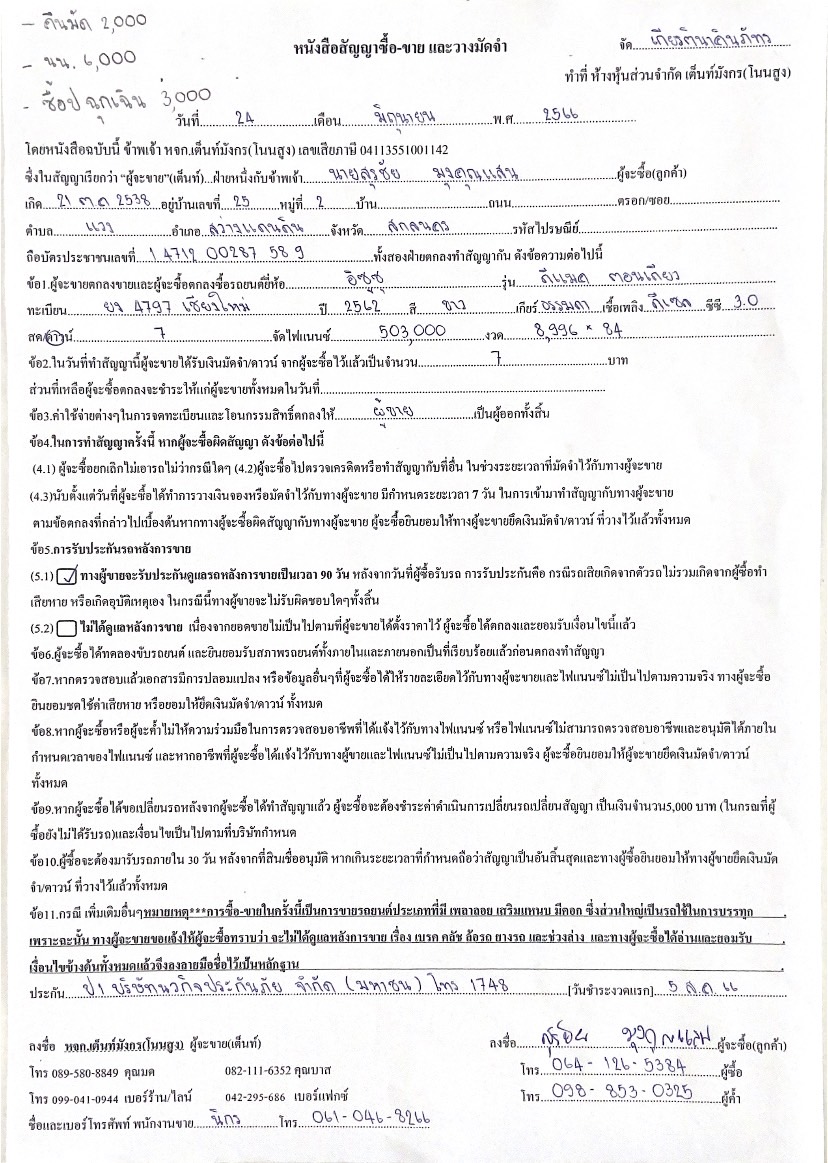 - คืนมัด 2,000
- นน. 6,000
- ช็อป ฉุกเฉิน 3,000
หนังสือสัญญาซื้อ-ขาย และวางมัดจำ
จัด เกียรตินาคินภัทร
ทำที่ ห้างหุ้นส่วนจำกัด เต็นท์มังกร(โนนสูง)
วันที่ 24 เดือน มิถุนายน พ.ศ 2566
โดยหนังสือฉบับนี้ ข้าพเจ้า หจก.เต็นท์มังกร(โนนสูง) เลขเสียภาษี 04113551001142
ซึ่งในสัญญาเรียกว่า “ผู้จะขาย”(เต็นท์)...ฝ่ายหนึ่งกับข้าพเจ้า นายสุรชัย มุงคุณแสน ผู้จะซื้อ(ลูกค้า)
เกิด 21 ต.ค 2538 อยู่บ้านเลขที่ 25 หมู่ที่ 2 บ้าน ถนน ตรอก/ซอย
ตำบล แวง อำเภอ สว่างแดนดิน จังหวัด สกลนคร รหัสไปรษณีย์
ถือบัตรประชาชนเลขที่ 1 4712 00287 58 9 ทั้งสองฝ่ายตกลงทำสัญญากัน ดังข้อความต่อไปนี้
ข้อ1.ผู้จะขายตกลงขายและผู้จะซื้อตกลงซื้อรถยนต์ยี่ห้อ อีซูซุ รุ่น ดีแมค ตอนเดียว
ทะเบียน ยง 4797 เชียงใหม่ ปี 2562 สี ขาว เกียร์ ธรรมดา เชื้อเพลิง ดีเซล ซีซี 3.0
สด/ดาวน์ 7 จัดไฟแนนซ์ 503,000 งวด 8,996 × 84
ข้อ2.ในวันที่ทำสัญญานี้ผู้จะขายได้รับเงินมัดจำ/ดาวน์ จากผู้จะซื้อไว้แล้วเป็นจำนวน 7 บาท
ส่วนที่เหลือผู้จะซื้อตกลงจะชำระให้แก่ผู้จะขายทั้งหมดในวันที่
ข้อ3.ค่าใช้จ่ายต่างๆในการจดทะเบียนและโอนกรรมสิทธิ์ตกลงให้ ผู้ขาย เป็นผู้ออกทั้งสิ้น
ข้อ4.ในการทำสัญญาครั้งนี้ หากผู้จะซื้อผิดสัญญา ดังข้อต่อไปนี้
(4.1) ผู้จะซื้อยกเลิกไม่เอารถไม่ว่ากรณีใดๆ (4.2)ผู้จะซื้อไปตรวจเครดิตหรือทำสัญญากับที่อื่น ในช่วงระยะเวลาที่มัดจำไว้กับทางผู้จะขาย
(4.3)นับตั้งแต่วันที่ผู้จะซื้อได้ทำการวางเงินจองหรือมัดจำไว้กับทางผู้จะขาย มีกำหนดระยะเวลา 7 วัน ในการเข้ามาทำสัญญากับทางผู้จะขาย
ตามข้อตกลงที่กล่าวไปเบื้องต้นหากทางผู้จะซื้อผิดสัญญากับทางผู้จะขาย ผู้จะซื้อยินยอมให้ทางผู้จะขายยึดเงินมัดจำ/ดาวน์ ที่วางไว้แล้วทั้งหมด
ข้อ5.การรับประกันรถหลังการขาย
(5.1) ทางผู้ขายจะรับประกันดูแลรถหลังการขายเป็นเวลา 90 วัน หลังจากวันที่ผู้ซื้อรับรถ การรับประกันคือ กรณีรถเสียเกิดจากตัวรถไม่รวมเกิดจากผู้ซื้อทำ
เสียหาย หรือเกิดอุบัติเหตุเอง ในกรณีนี้ทางผู้ขายจะไม่รับผิดชอบใดๆทั้งสิ้น
(5.2) ไม่ได้ดูแลหลังการขาย เนื่องจากยอดขายไม่เป็นไปตามที่ผู้จะขายได้ตั้งราคาไว้ ผู้จะซื้อได้ตกลงและยอมรับเงื่อนไขนี้แล้ว
ข้อ6.ผู้จะซื้อได้ทดลองขับรถยนต์ และยินยอมรับสภาพรถยนต์ทั้งภายในและภายนอกเป็นที่เรียบร้อยแล้วก่อนตกลงทำสัญญา
ข้อ7.หากตรวจสอบแล้วเอกสารมีการปลอมแปลง หรือข้อมูลอื่นๆที่ผู้จะซื้อได้ให้รายละเอียดไว้กับทางผู้จะขายและไฟแนนซ์ไม่เป็นไปตามความจริง ทางผู้จะซื้อ
ยินยอมชดใช้ค่าเสียหาย หรือยอมให้ยึดเงินมัดจำ/ดาวน์ ทั้งหมด
ข้อ8.หากผู้จะซื้อหรือผู้จะค้ำไม่ให้ความร่วมมือในการตรวจสอบอาชีพที่ได้แจ้งไว้กับทางไฟแนนซ์ หรือไฟแนนซ์ไม่สามารถตรวจสอบอาชีพและอนุมัติได้ภายใน
กำหนดเวลาของไฟแนนซ์ และหากอาชีพที่ผู้จะซื้อได้แจ้งไว้กับทางผู้ขายและไฟแนนซ์ไม่เป็นไปตามความจริง ผู้จะซื้อยินยอมให้ผู้จะขายยึดเงินมัดจำ/ดาวน์
ทั้งหมด
ข้อ9.หากผู้จะซื้อได้ขอเปลี่ยนรถหลังจากผู้จะซื้อได้ทำสัญญาแล้ว ผู้จะซื้อจะต้องชำระค่าดำเนินการเปลี่ยนรถเปลี่ยนสัญญา เป็นเงินจำนวน5,000 บาท (ในกรณีที่ผู้
ซื้อยังไม่ได้รับรถ)และเงื่อนไขเป็นไปตามที่บริษัทกำหนด
ข้อ10.ผู้ซื้อจะต้องมารับรถภายใน 30 วัน หลังจากที่สินเชื่ออนุมัติ หากเกินระยะเวลาที่กำหนดถือว่าสัญญาเป็นอันสิ้นสุดและทางผู้ซื้อยินยอมให้ทางผู้ขายยึดเงินมัด
จำ/ดาวน์ ที่วางไว้แล้วทั้งหมด
ข้อ11.กรณี เพิ่มเติมอื่นๆหมายเหตุ***การซื้อ-ขายในครั้งนี้เป็นการขายรถยนต์ประเภทที่มี เพลาลอย เสริมแหนบ มีดอก ซึ่งส่วนใหญ่เป็นรถใช้ในการบรรทุก
เพราะฉะนั้น ทางผู้จะขายขอแจ้งให้ผู้จะซื้อทราบว่า จะไม่ได้ดูแลหลังการขาย เรื่อง เบรค คลัช ล้อรถ ยางรถ และช่วงล่าง และทางผู้จะซื้อได้อ่านและยอมรับ
เงื่อนไขข้างต้นทั้งหมดแล้วจึงลงลายมือชื่อไว้เป็นหลักฐาน
ประกัน ป1 บริษัทนวกิจประกันภัย จำกัด (มหาชน) โทร 1748 [วันชำระงวดแรก] 5 ส.ค 66
ลงชื่อ หจก.เต็นท์มังกร(โนนสูง) ผู้จะขาย(เต็นท์) ลงชื่อ ผู้จะซื้อ(ลูกค้า)
โทร 089-580-8849 คุณมด 082-111-6352 คุณบาส โทร 064-126-5384 ผู้ซื้อ
โทร 099-041-0944 เบอร์ร้าน/ไลน์ 042-295-686 เบอร์แฟกซ์ โทร 098-853-0325 ผู้ค้ำ
ชื่อและเบอร์โทรศัพท์ พนักงานขาย นิกร โทร 061-046-8266